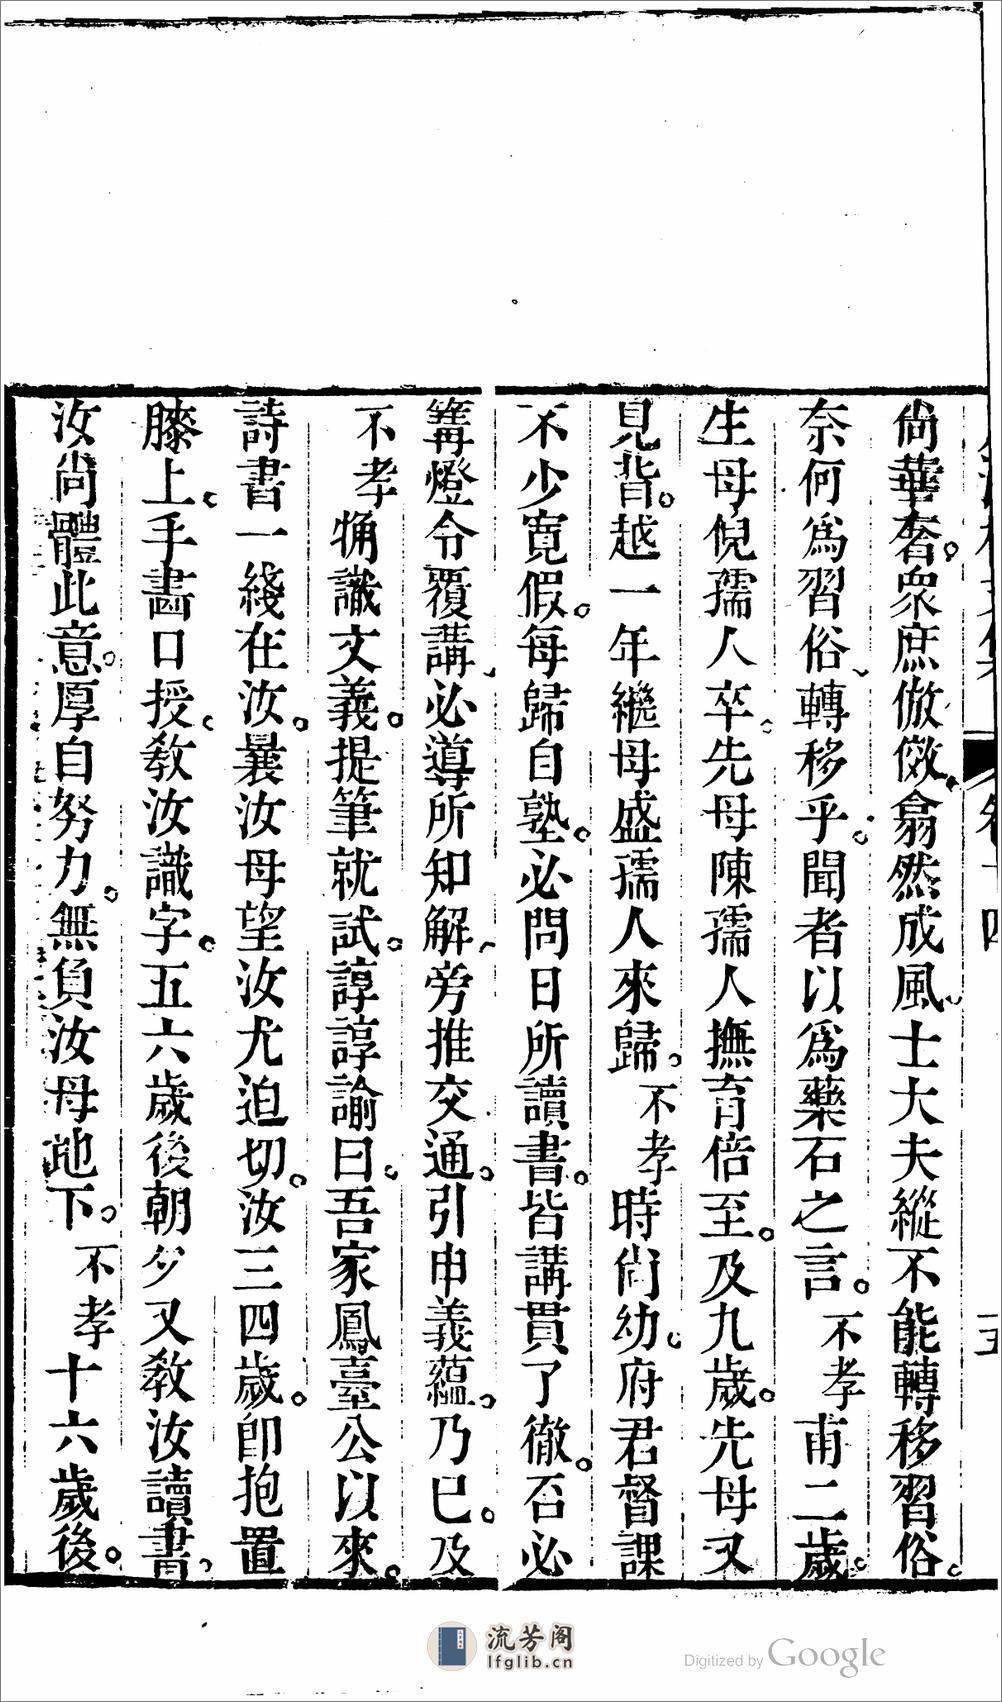 尙華奢。衆庶倣傚。翕然成風。士大夫縱不能轉移習俗。
奈何爲習俗轉移乎。聞者以爲藥石之言。不孝甫二歲。
生母倪孺人卒。先母陳孺人撫育倍至。及九歲。先母又
見背。越一年繼母盛孺人來歸。不孝時尙幼。府君督課
不少寬假。每歸自塾。必問日所讀書。皆講貫了徹。否必
篝燈令覆講。必導所知解。旁推交通。引申義蘊。乃已。及
不孝觕識文義。提筆就試。諄諄諭曰。吾家鳳臺公以來。
詩書一綫在汝。曩汝母望汝尤迫切。汝三四歲。卽抱置
膝上。手書口授。敎汝識字。五六歲後朝夕又敎汝讀書。
汝尙體此意。厚自努力。無負汝母地下。不孝十六歲後。
卷十四
五
流芳阁
lfglib.cn
Digitized by Google